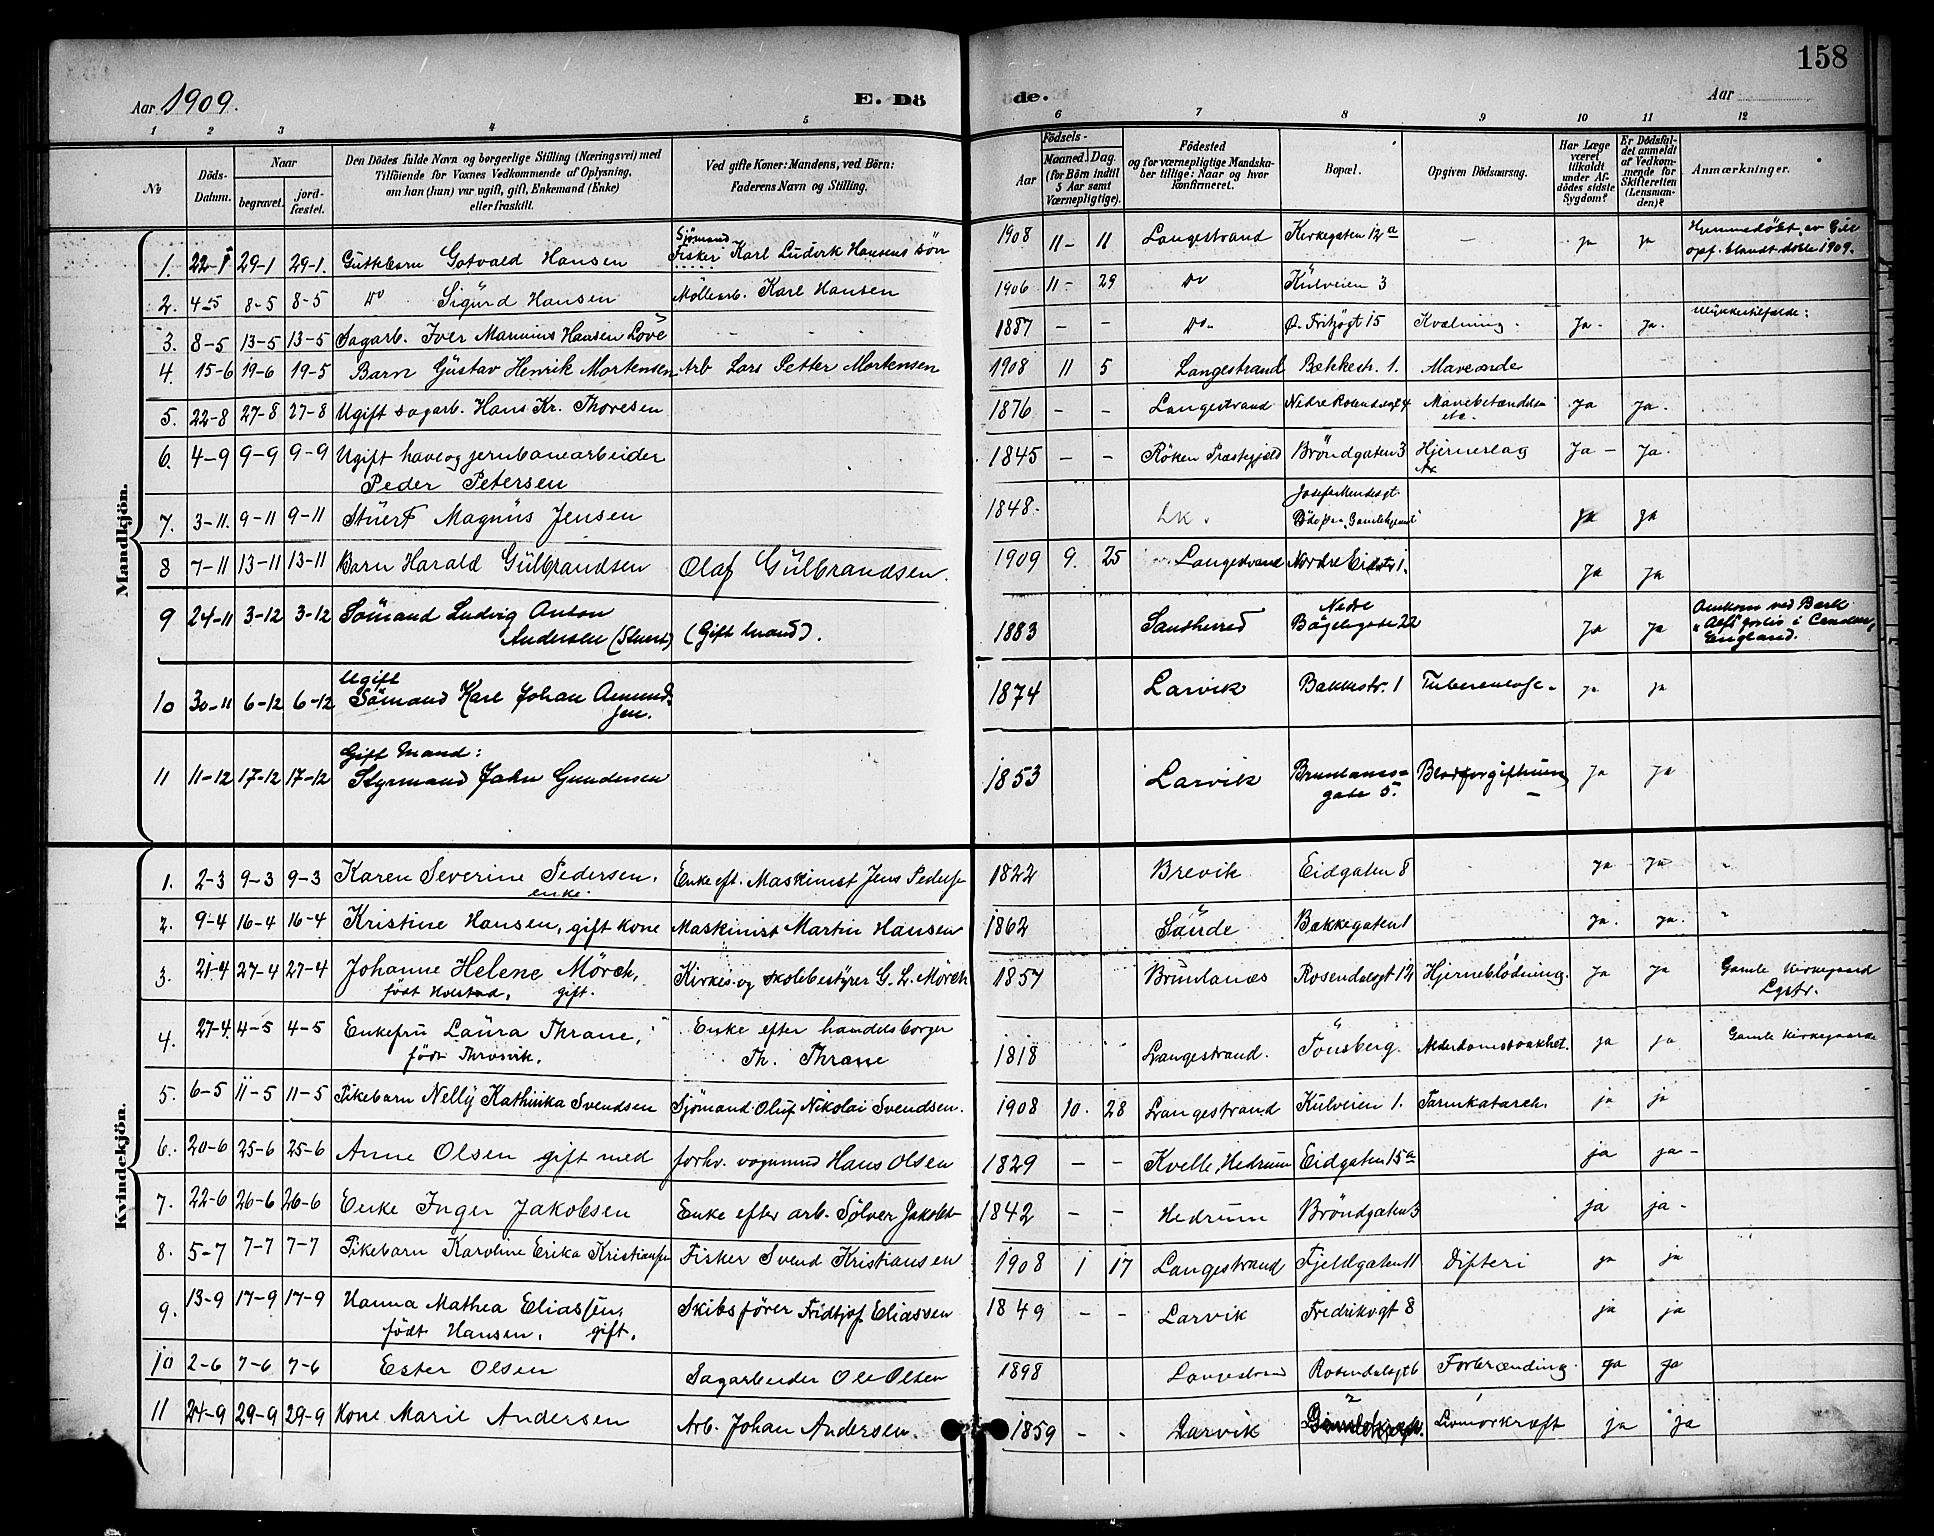 158
Aar 1909.
E. Dö
de.
Aar
1 2 3 4 5 6 7 8 9 10 11 12
No
Döds-Datum.
Naar
begravet.
jord-fæstet.
Den Dödes fulde Navn og borgerlige Stilling (Næringsvei) med
Tilföiende for Voxnes Vedkommende af Oplysning,
om han (hun) var ugift, gift, Enkemand (Enke)
eller fraskilt.
Ved gifte Koner: Mandens, ved Börn:
Faderens Navn og Stilling.
Födsels-
Aar
Maaned. Dag.
(for Börn indtil
5 Aar samt
Værnepligtige).
Födested
og for værnepligtige Mandska-
ber tillige: Naar og hvor
konfirmeret.
Bopæl.
Opgiven Dödsaarsag.
Har Læge
været
tilkaldt
under Af-
dödes sidste
Sygdom?
Er Dödsfal-
det anmeldt
af Vedkom-
mende for
Skifteretten
(Lensman-
den)?
Anmærkninger.
Mandkjön.
1. 22-1 29-1 29-1. Guttebarn Gotvald Hansen Sjømand Fisker Karl Ludvik Hansens sön 1908 11- 11 Langestrand Kirkegaten 12a - ja ja Hjemmedöbt opf. blandt döbte 1909.
2. 4-5 8-5 8-5 Do Sigurd Hansen Möllearb. Karl Hansen 1906 11- 29 Do Kulveien 3
3. 8-5 13-5 13-5 Sagarb. Iver Marinius Hansen Löve - - - 1887 - - Do- Ø. Fritzögt 15 Kvælning. Ja. ja. Ulykkestilfælde:
4. 15-6 19-6 19-5 Barn Gustav Henrik Mortensen Arb Lars Petter Mortensen 1908 11 5 Langestrand Bækkestr. 1. Maveonde
5. 22-8 27-8 27-8 Ugift sagarb. Hans Kr. Thoresen 1876 - - Langestrand Nedre Rosendalsgt 4 Mavebetændelse etc. Ja Ja.
6. 4-9 9-9 9-9 Ugift have og jernbanearbeider
Peder Petersen 1845 - - Röken Præstegjæld Bröndgaten 3 Hjerneslag Ja - Ja.
7. 3-11. 9-11 9-11 Stuert Magnus Jensen 1848. Lk. ja ja
8 7-11 13-11 13-11 Barn Harald Gulbrandsen Olaf Gulbrandsen. 1909 9. 25 Langestrand Nordre Eidstr 1. Ja Ja
9 24-11 3-12 3-12 Sömand Ludvig Anton
Andersen (Stuert) (Gift Mand). 1883 Sandherred Nedre Bögelegate 22 Ja Ja Omkom ved Bark "Alf's" forlis i England.
10 30-11 6-12 6-12 Ugift
Sömand Karl Johan Amund-
sen. 1874 Larvik Bakkestr. 1 Tuberculose. ja ja
11 11-12 17-12 17-12 Gift Mand:
Styrmand John Gundersen 1853 Larvik Brunlanes-
gate 5. Blodforgiftning ja ja
Kvindekjön.
1. 2-3 9-3 9-3 Karen Severine Pedersen,
enke. Enke eft. Maskinist Jens Pedersen 1822 Brevik Eidgaten 8 ja ja
2. 9-4 16-4 16-4 Kristine Hansen, gift kone Maskinist Martin Hansen 1862 Sande Bakkegaten 1 ja. ja.
3. 21-4 27-4 27-4 Johanne Helene Mörch,
födt Holstad. gift. Kirkes. og skolebestyrer G. L. Mörch 1857 Brunlanæs Rosendalsgt 12 Hjerneblödning. ja ja Gamle Kirkegaard
Lgstr.
4. 27-4. 4-5 4-5 Enkefru Laura Thrane,
födt Enke efter handelsborger
Th. Thrane 1818 Langestrand. Tönsberg. Alderdomssvakhet. ja ja Gamle Kirkegaarde
5. 6-5 11-5 11-5 Pikebarn Nelly Kathinka Svendsen Sjömand Oluf Nikolai Svendsen. 1908 10. 28 Langestrand Kulveien 1. Tarmkatarrh. ja ja
6. 20-6 25-6 25-6 Anne Olsen gift med forhv. vognmand Hans Olsen 1829 - - Kvelle, Hedrum Eidgaten 15a ja ja -
7. 22-6 26-6 26-6 Enke Inger Jakobsen Enke efter arb. Sölver Jakobs- 1842 - - Hedrum Bröndgaten 3 ja ja -
8. 5-7 7-7 7-7 Pikebarn Karoline Erika Kristiansen Fisker Svend Kristiansen 1908 1 17 Langestrand Fjeldgaten 11 Difteri ja ja
9. 13-9 17-9 17-9 Hanna Mathea Eliassen,
födt Hansen. gift. Skibsförer Fridtjof Eliassen 1849 - - Larvik Fredriksgt 8 ja ja
10 2-6 7-6 7-6 Ester Olsen Sagarbeider Ole Olsen 1898 Langestrand Rosendalsgt 6 Forbrænding. ja ja
11 24-9 29-9 29-9 Kone Marie Andersen Arb. Johan Andersen. 1859 - - Larvik Livmorkræft ja ja